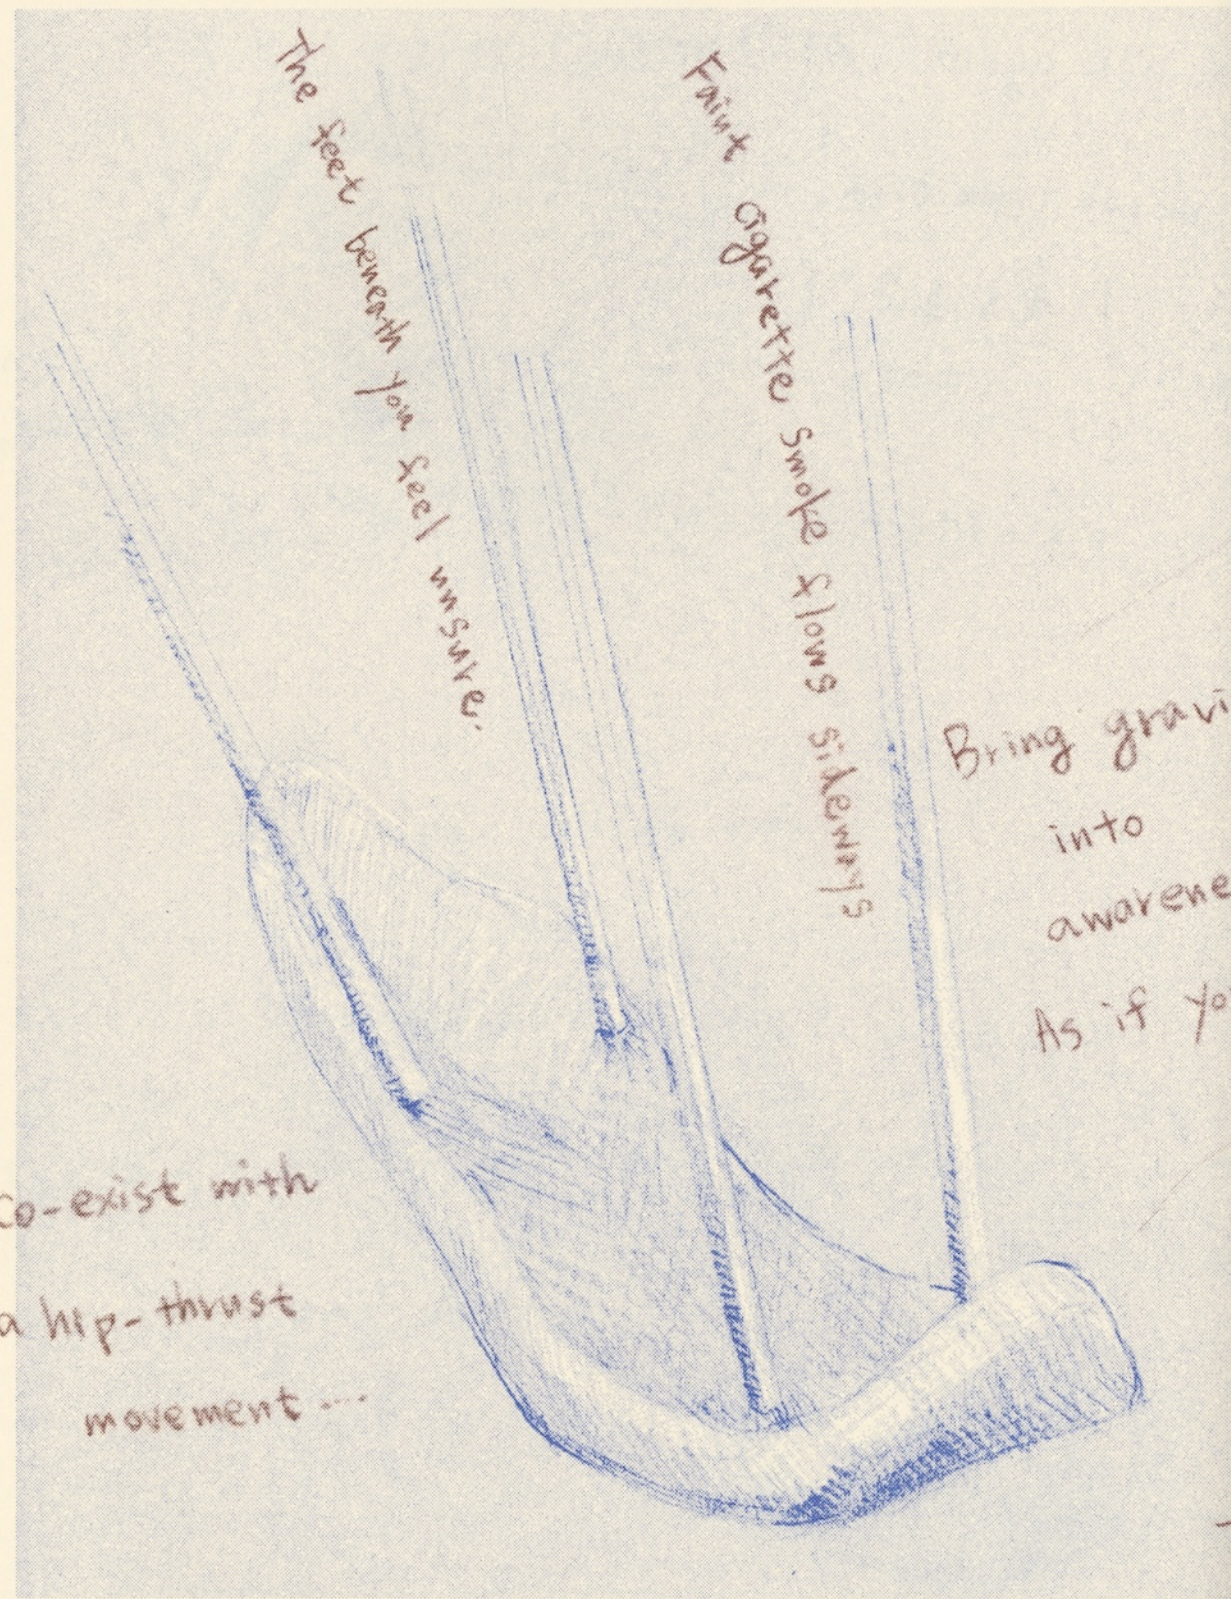 The feet beneath you feel unsure.
Faint cigarette smoke flows sideways
Bring gravi
into
awarene
As if yo
co-exist with
a hip-thrust
movement ...